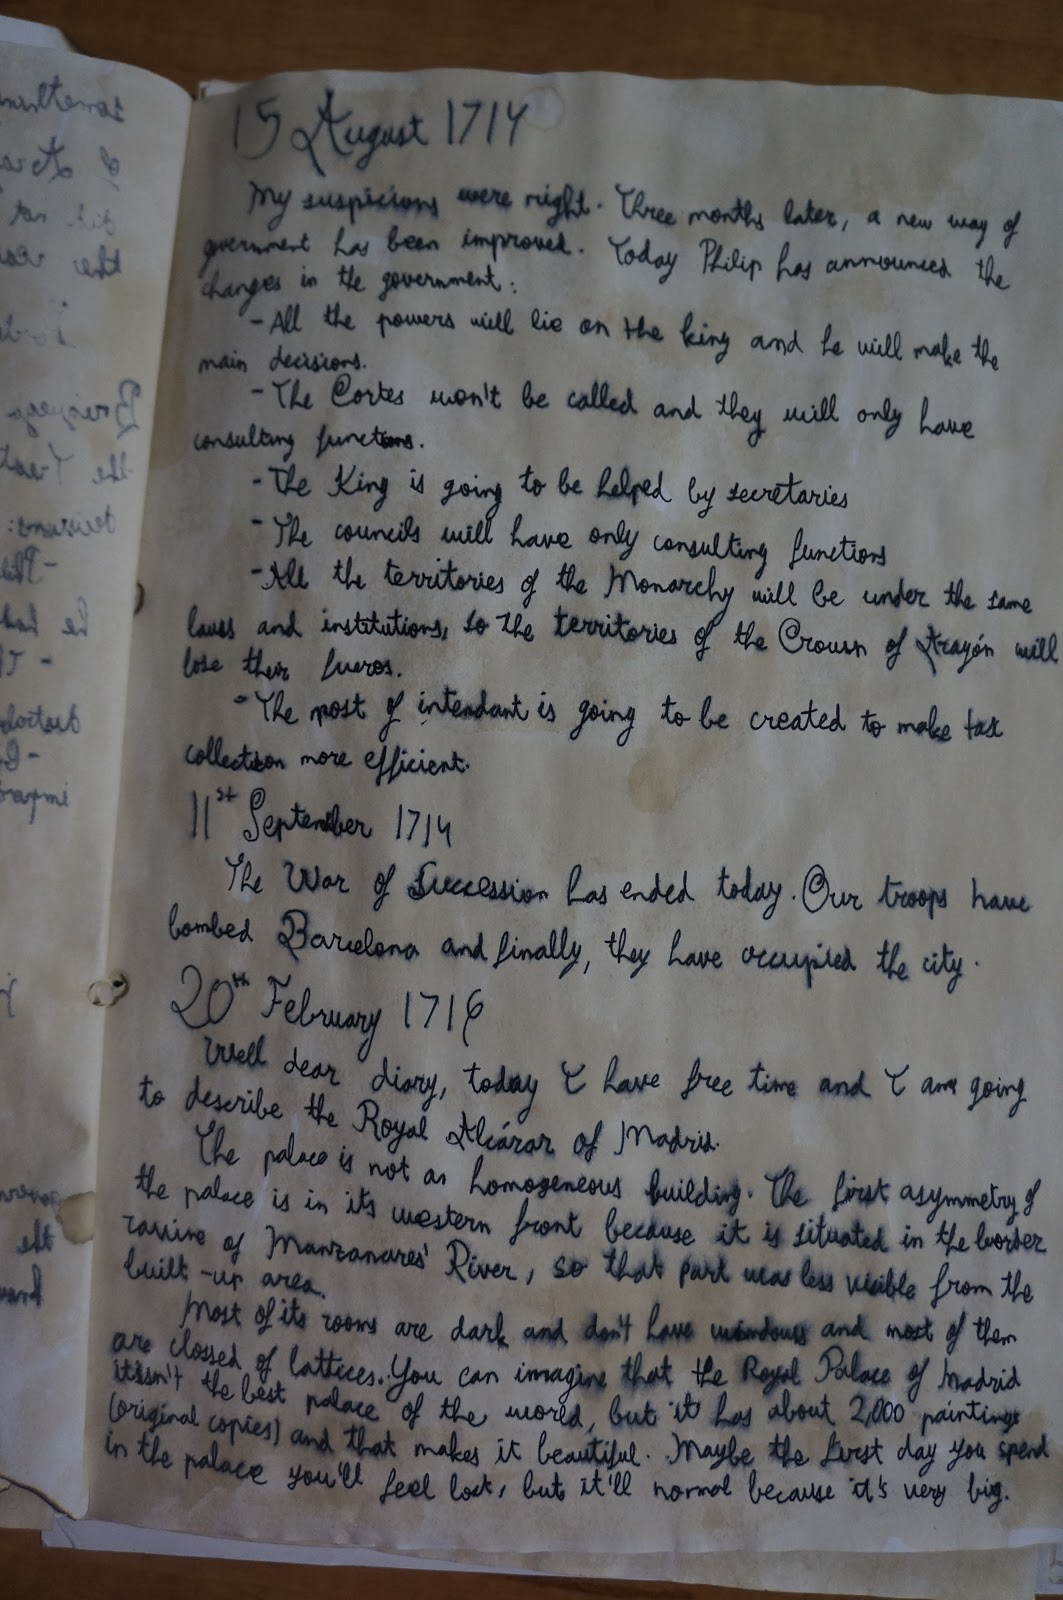 15 August 1714
My suspicions were right. Three months later, a new way of
government has been improved. Today Philip has announced the
changes in the government:
- All the powers will lie on the king and he will make the
main decisions.
- The Cortes won't be called and they will only have
consulting functions.
- The King is going to be helped by secretaries
- The councils will have only consulting functions
- All the territories of the Monarchy will be under the same
laws and institutions, so the territories of the Crown of Aragón will
lose their fueros.
- The post of intendant is going to be created to make tax
collection more efficient.
11st September 1714
The War of Succession has ended today. Our troops have
bombed Barcelona and finally, they have occupied the city.
20th February 1716
Well dear diary, today I have free time and I am going
to describe the Royal Alcázar of Madrid.
The palace is not an homogeneous building. The first asymmetry of
the palace is in its western front because it is situated in the border
ravine of Manzanares' River, so that part was less visible from the
built-up area.
Most of its rooms are dark and don't have windows and most of them
are clossed of lattices. You can imagine that the Royal Palace of Madrid
itisn't the best palace of the world, but it has about 2,000 paintings
(original copies) and that makes it beautiful. Maybe the first day you spend
in the palace you'll feel lost, but it'll normal because it's very big.